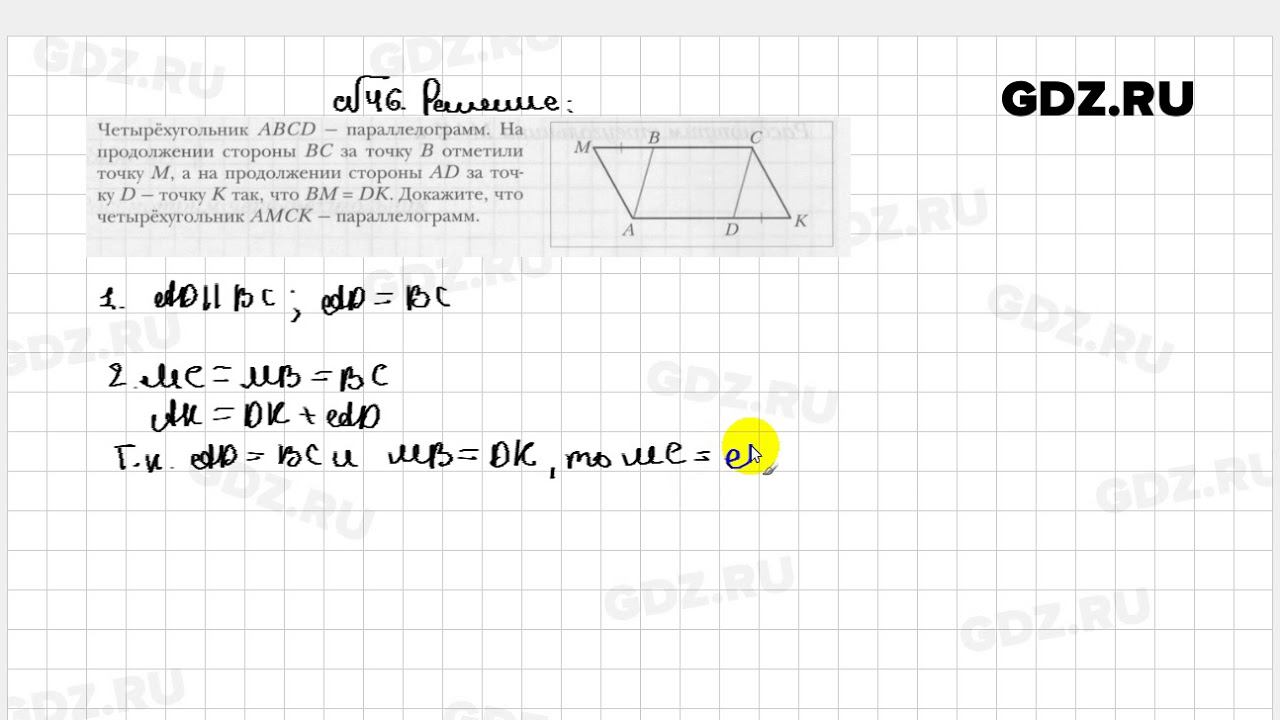 GDZ.RU
№46. Решение:
Четырёхугольник ABCD – параллелограмм. На
продолжении стороны BC за точку B отметили
точку M, а на продолжении стороны AD за точ-
ку D – точку K так, что BM = DK. Докажите, что
четырёхугольник AMCK – параллелограмм.
M B C
A D K
1. AD || BC ; AD = BC
2. MC = MB = BC
AK = DK + AD
Т.к. AD = BC и MB = DK, то MC = A